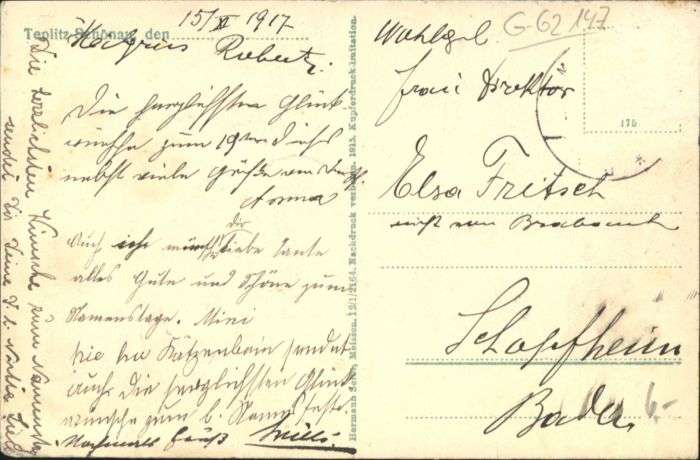 Teplitz-Schönau, den 15/XI 1917
Robert
Die herzlichsten Glück-
wünsche zum 19ten dies
nebst viele Grüße von
Anna
Auch ich wünsche dir liebe Tante
alles Gute und Schöne zum
Namenstage. Mini
Katzenbein sendet
auch die herzlichsten Glück
wünsche zum l. Namensfeste.
Nochmals Gruß Willi
Die herzlichsten Wünsche zum Namenstag
sendet Dir Deine
Hermann Seibt, Meissen. 12/1/2164. Nachdruck verboten. 1913. Kupferdruck-Imitation.
G-62 147
175
Wohlgeb
Frau Direktor
Elsa Fritsch
Schopfheim
Baden
6-